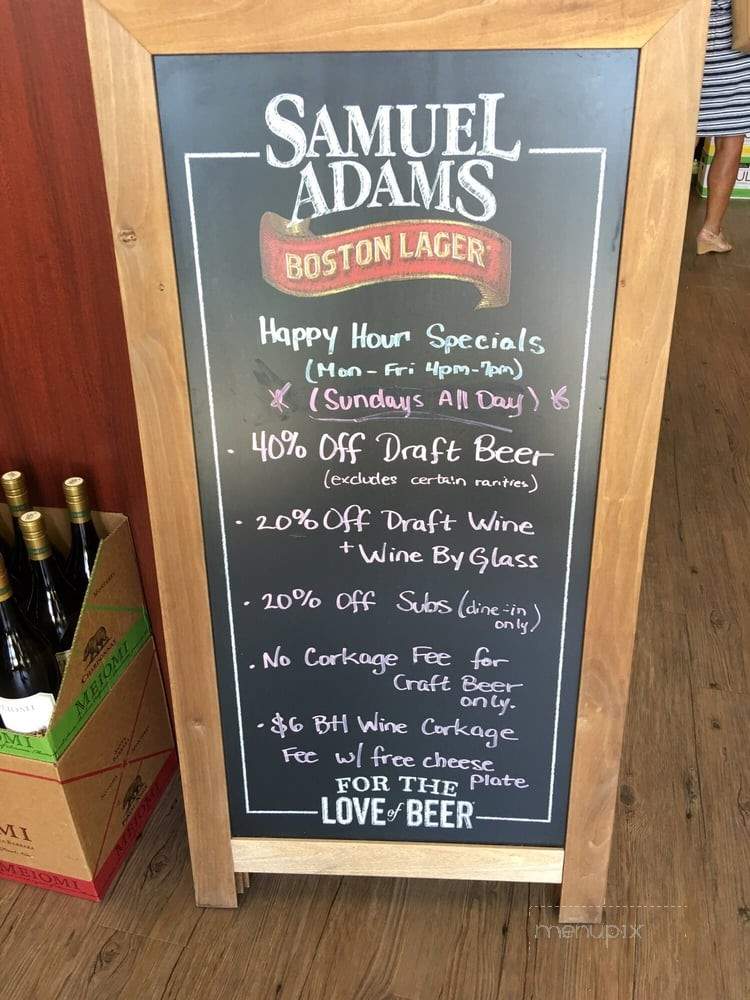 SAMUEL
ADAMS
BOSTON LAGER
Happy Hour Specials
(Mon - Fri 4pm-7pm)
* (Sundays All Day) *
· 40% Off Draft Beer
(excludes certain rarities)
· 20% Off Draft Wine
+ Wine By Glass
· 20% Off Subs (dine-in
only)
· No Corkage Fee for
Craft Beer
only.
· $6 BH Wine Corkage
Fee w/ free cheese
plate
FOR THE
LOVE of BEER
CHARDONNAY
MEIOMI
MI
MI
MEIOMI
menupix